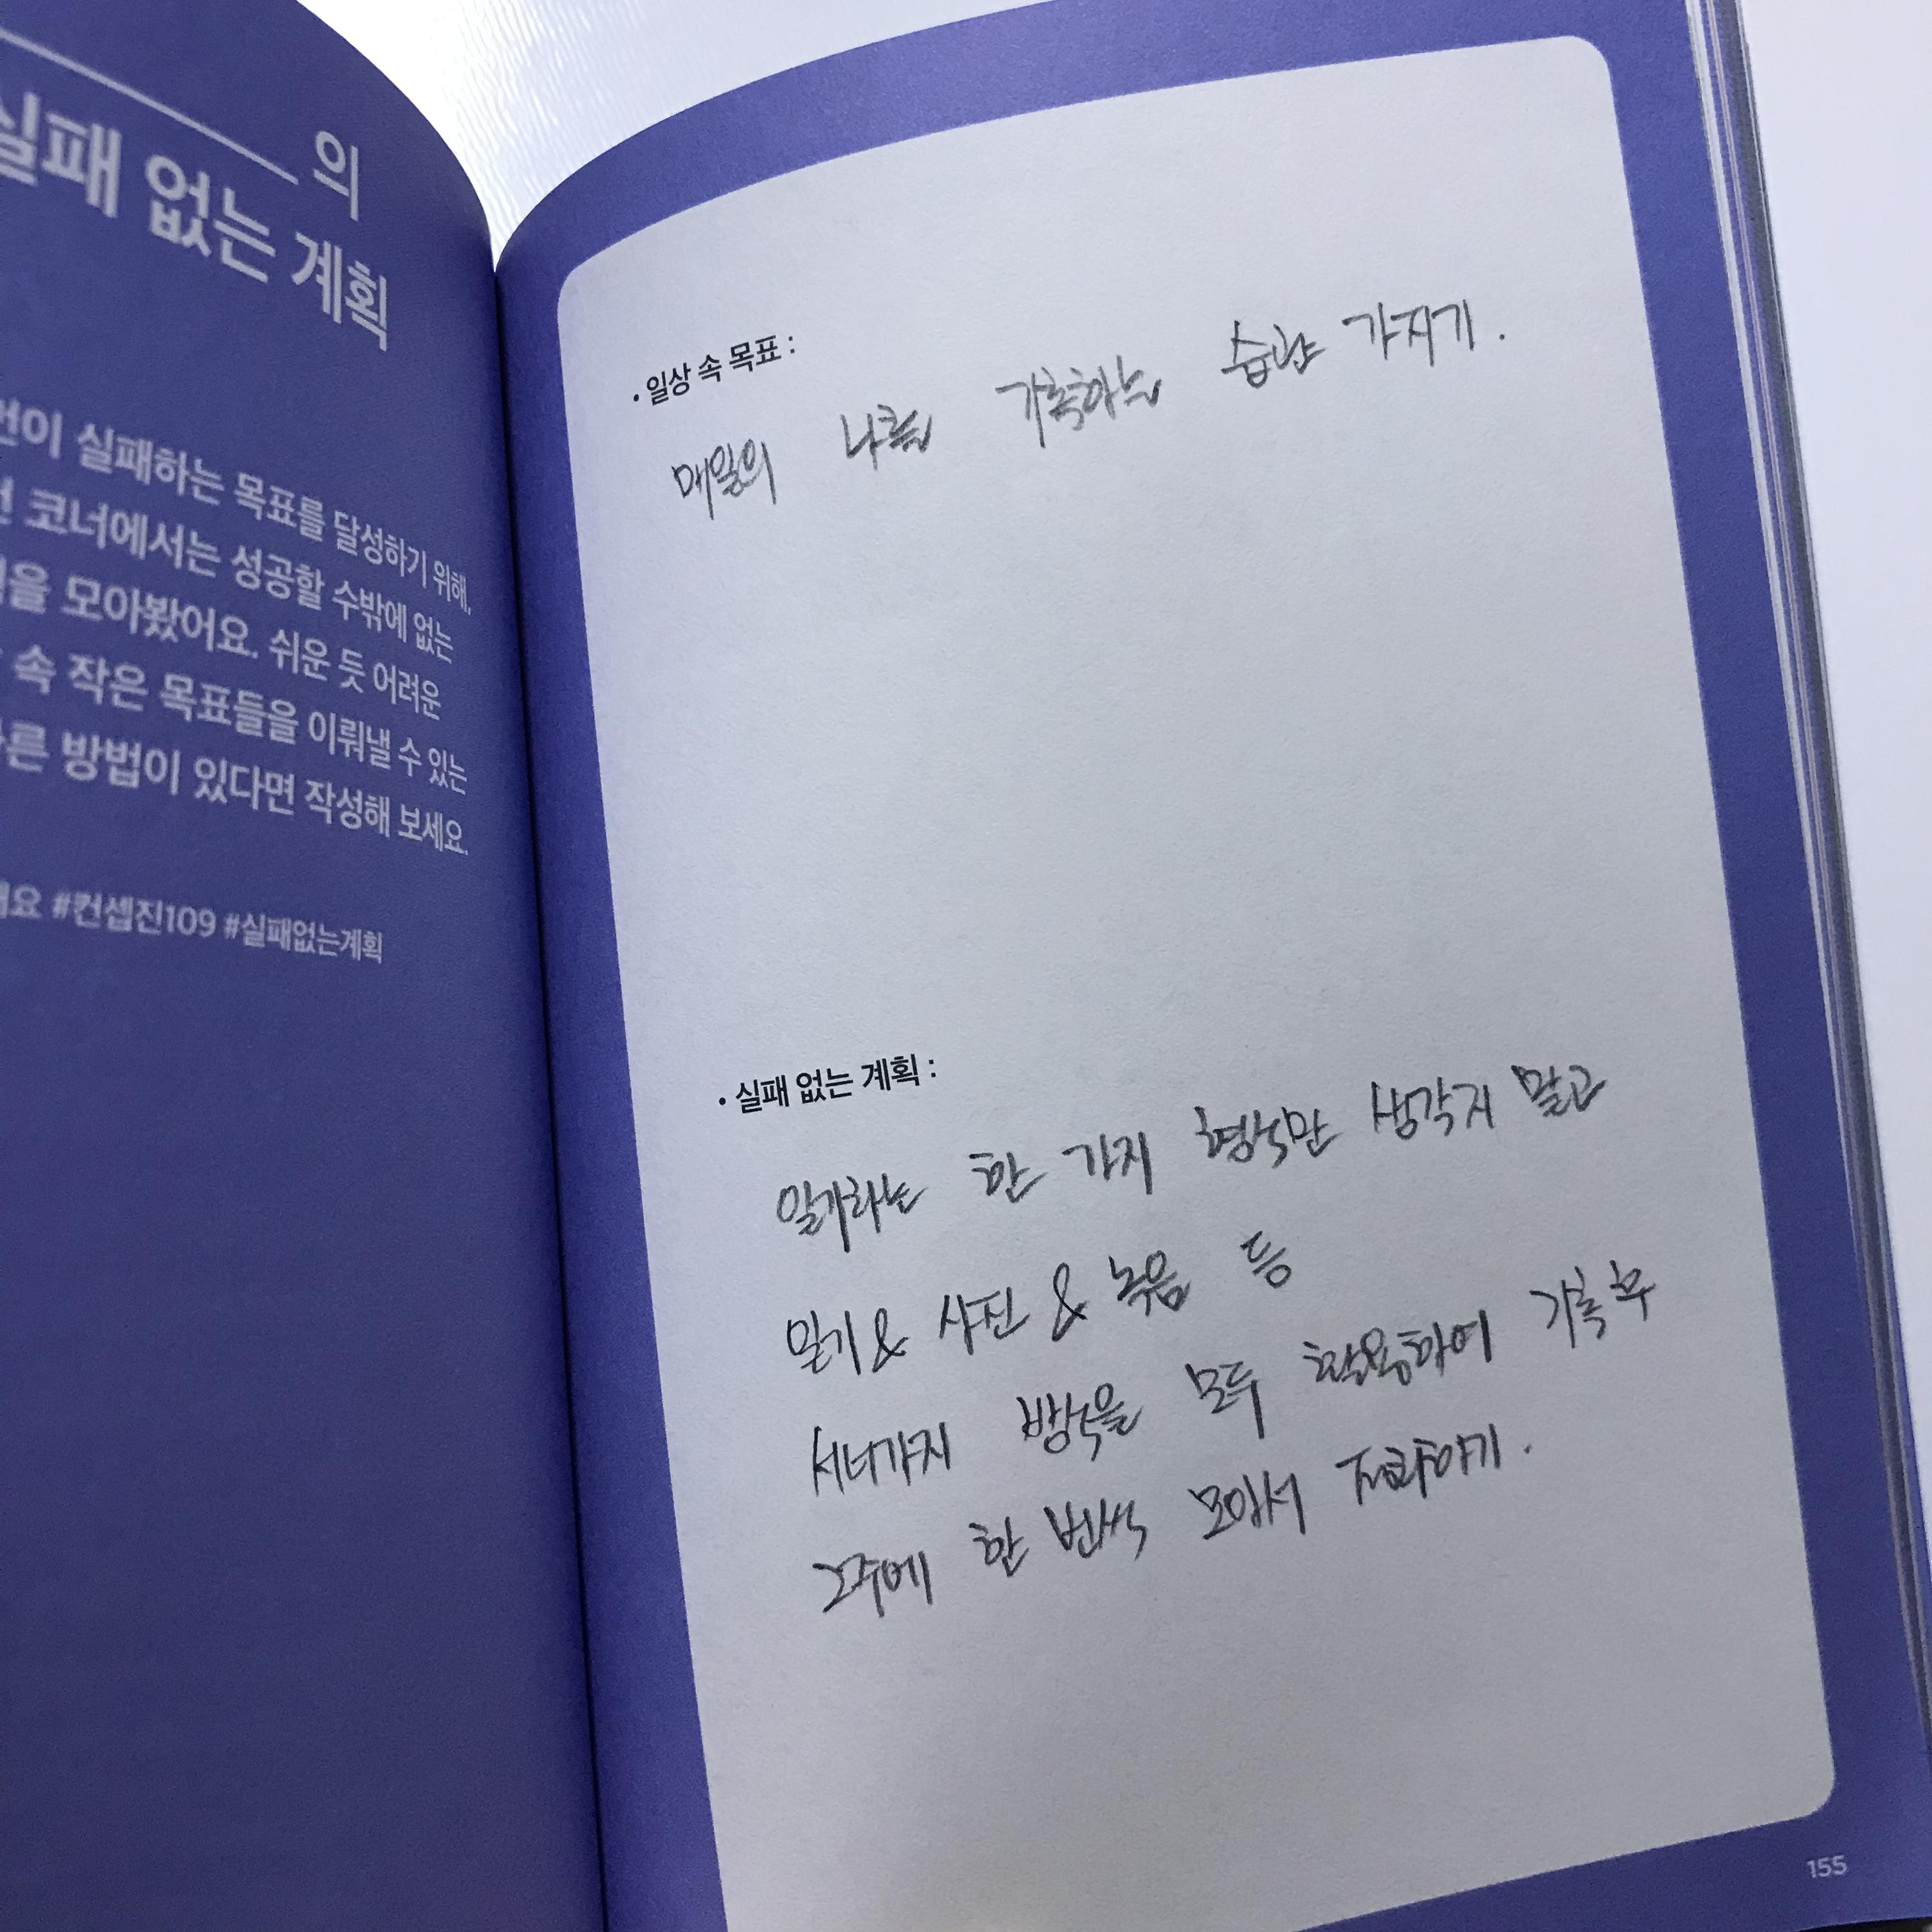 의
실패 없는 계획
실패하는 목표를 달성하기 위해,
코너에서는 성공할 수밖에 없는
모아봤어요. 쉬운 듯 어려운
속 작은 목표들을 이뤄낼 수 있는
방법이 있다면 작성해 보세요.
#컨셉진109 #실패없는계획
• 일상 속 목표 :
매일의 나를 기록하는 습관 가지기.
• 실패 없는 계획 :
일기라는 한 가지 형식만 생각지 말고
일기 & 사진 & 녹음 등
서너가지 방식을 모두 활용하여 기록 후
2주에 한 번씩 모아서 정리하기.
155